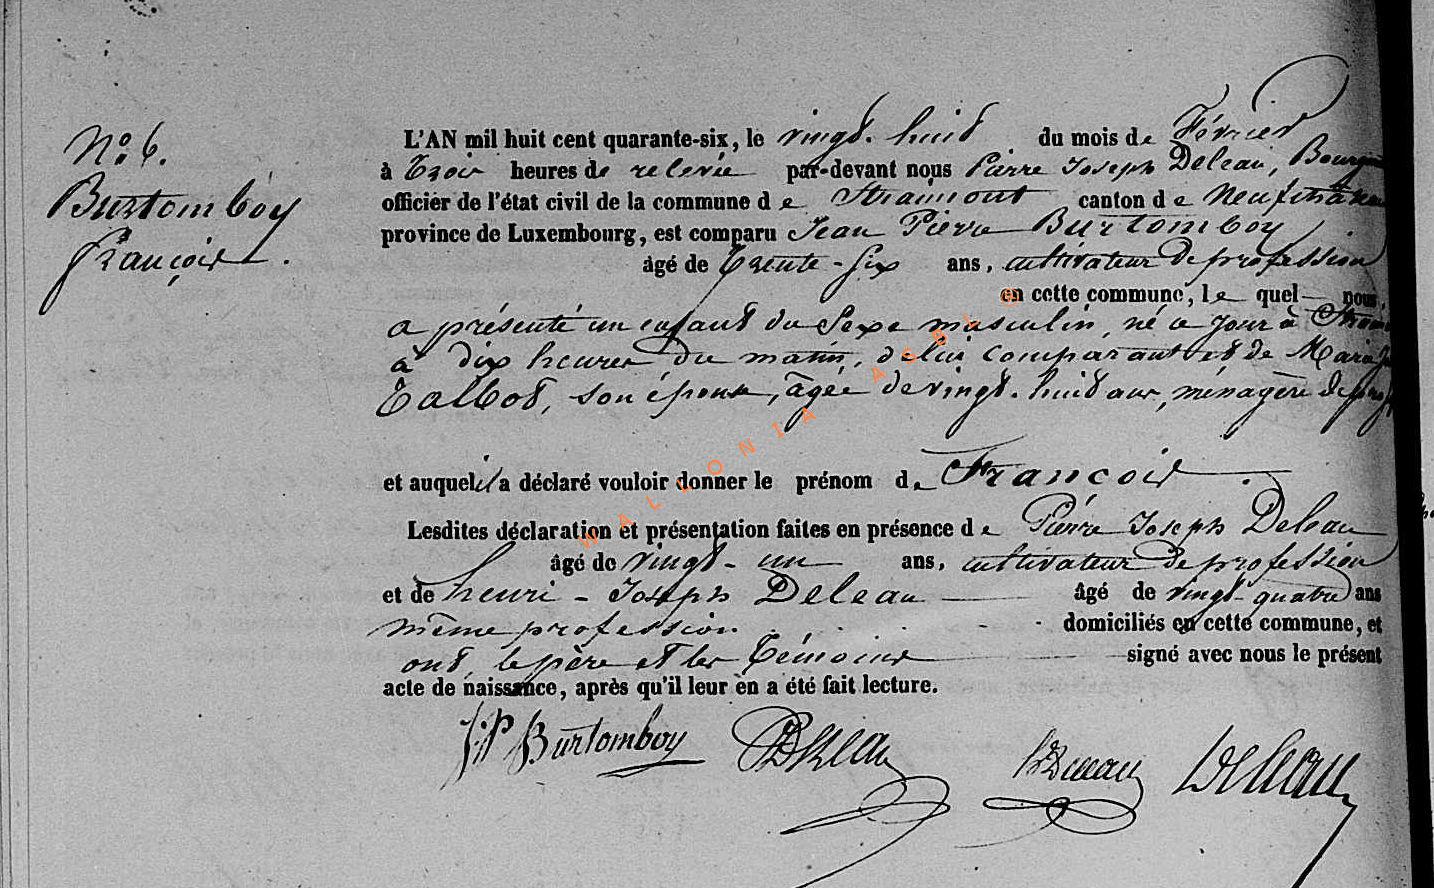 N° 6.
Burtomboy
François.
L'AN mil huit cent quarante-six, le vingt-huit du mois de Février
à trois heures de relevée par-devant nous Pierre Joseph Deleau,
officier de l'état civil de la commune de Straimont canton de Neufchâteau
province de Luxembourg, est comparu Jean Pierre Burtomboy
âgé de trente-six ans, cultivateur de profession
en cette commune, lequel nous,
a présenté un enfant du sexe masculin, né ce jour à
à dix heures du matin, de lui comparant et de Marie
Talbot, son épouse, âgée de vingt-huit ans, ménagère de
et auquel il a déclaré vouloir donner le prénom de François.
Lesdites déclaration et présentation faites en présence de Pierre Joseph Deleau
âgé de vingt-un ans, cultivateur de profession
et de henri-Joseph Deleau âgé de vingt-quatre ans
même profession domiciliés en cette commune, et
ont, le père et les témoins signé avec nous le présent
acte de naissance, après qu'il leur en a été fait lecture.
JP Burtomboy PJDeleau HJDeleau Deleau
WALLONIA ASBL ©